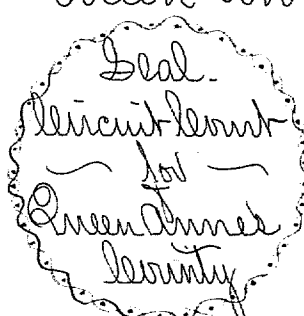 Seal.
Circuit Court
for
Queen Anne's
County